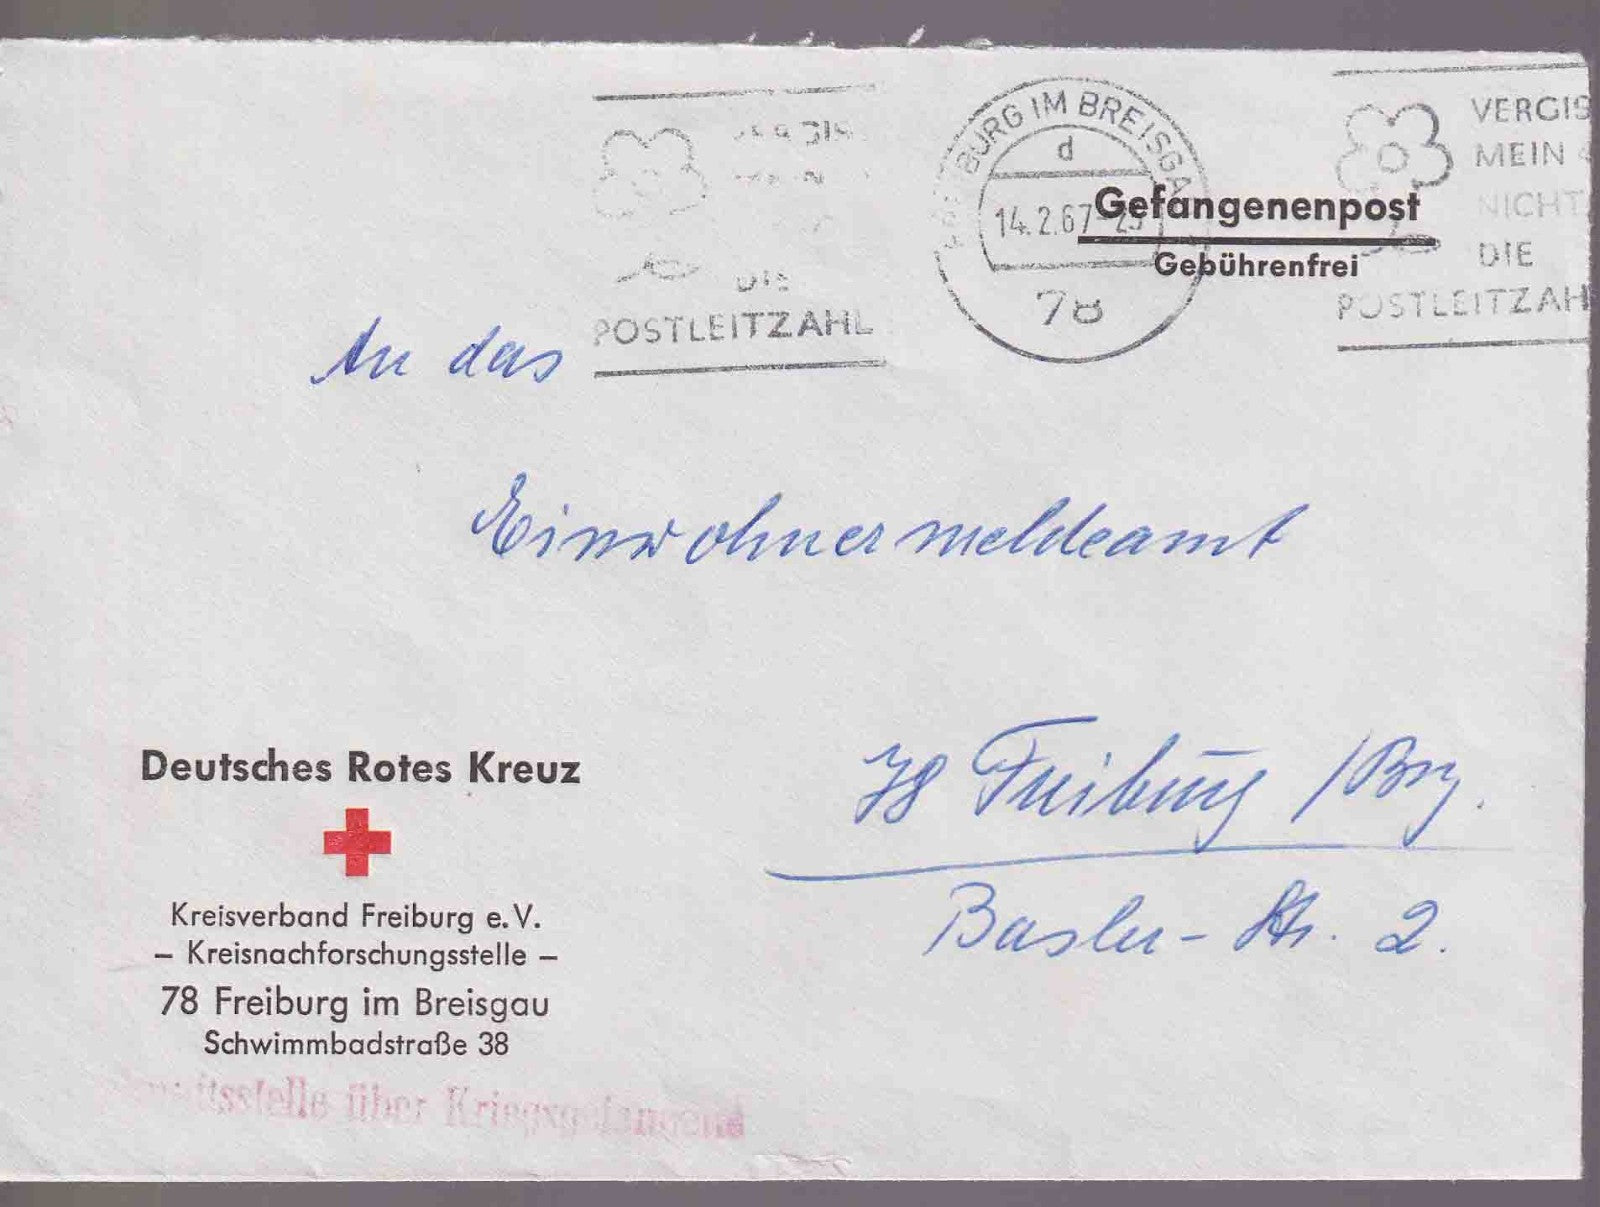 POSTLEITZAHL
FREIBURG IM BREISGAU
d
14.2.67
78
Gefangenenpost
Gebührenfrei
VERGIS
MEIN
NICHT
DIE
POSTLEITZAH
An das
Einwohnermeldeamt
78 Freiburg /Brg.
Basler-Str. 2.
Deutsches Rotes Kreuz
Kreisverband Freiburg e.V.
– Kreisnachforschungsstelle –
78 Freiburg im Breisgau
Schwimmbadstraße 38
über